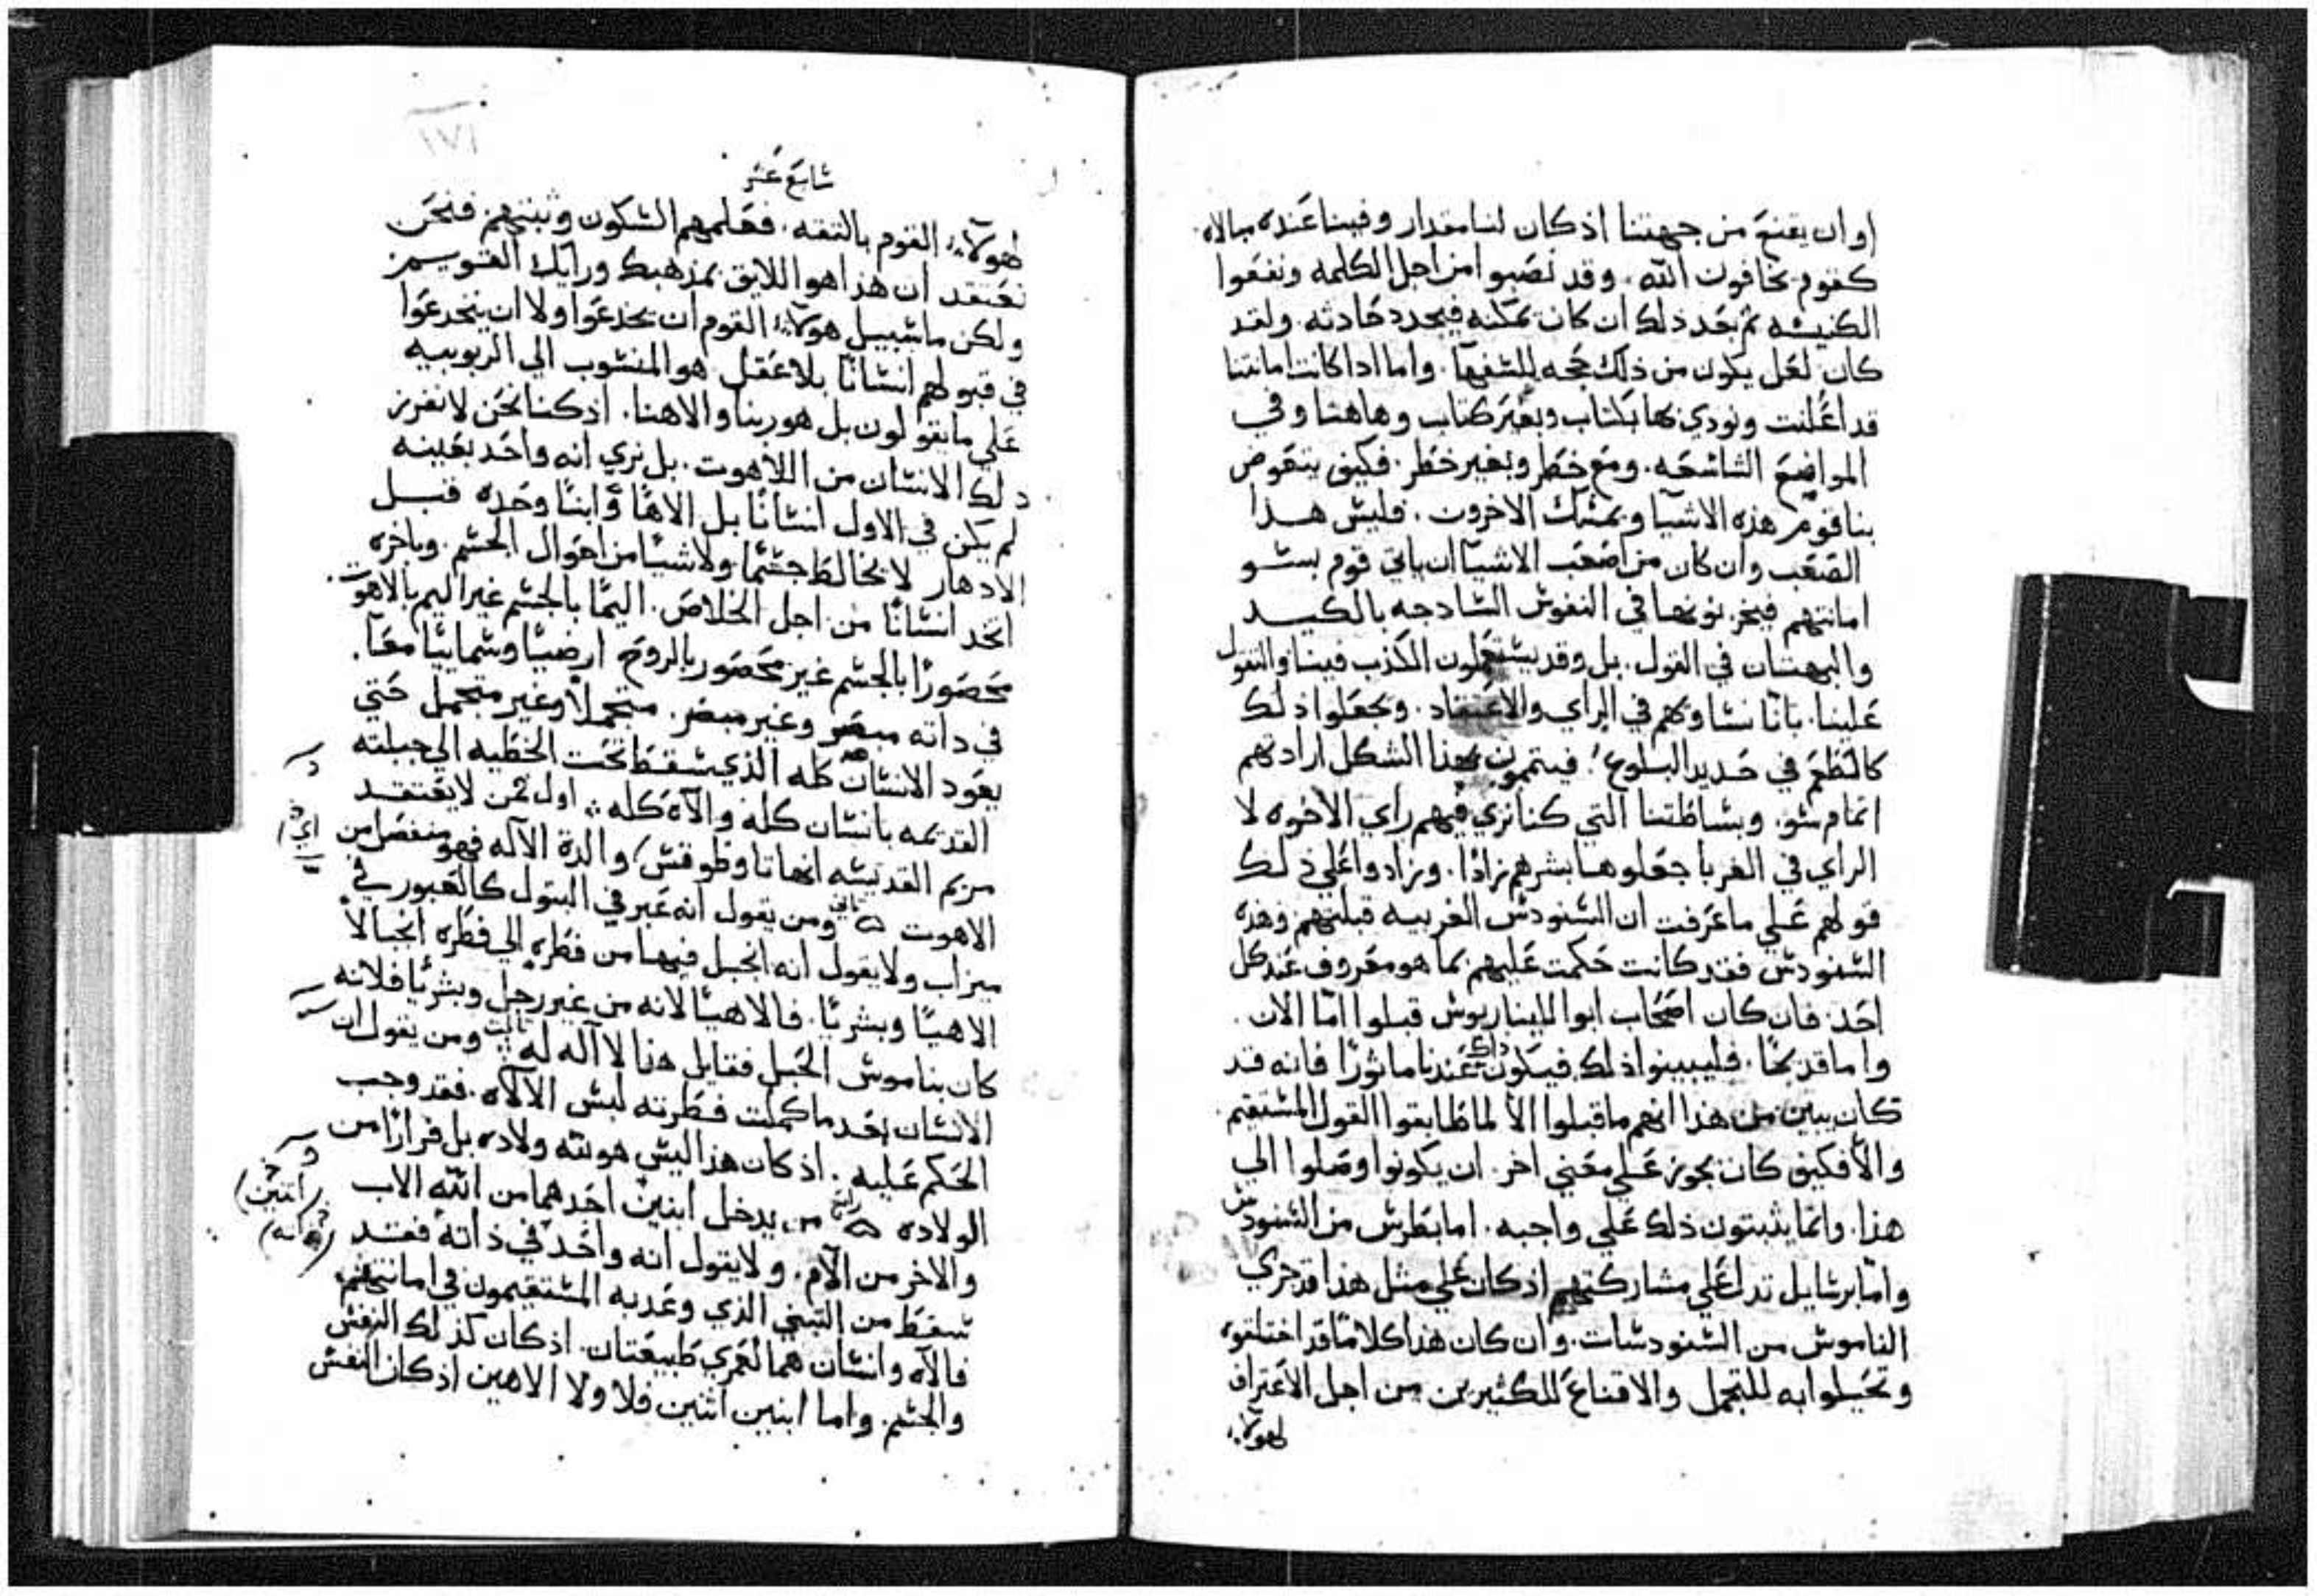 او ان يقنع من جهتنا اذ كان لنا مقدار وفينا عنده مبالاه
كقوم يخافون الله. وقد نصبوا من اجل الكلمه ونفعوا
الكنيسه ثم بعد ذلك ان كان يمكنه فيجدد حادثه. ولقد
كان لعل يكون من ذلك حجه للسفهآ. واما اذا كانت امانتنا
قد اعلنت ونودي بها بكتاب وبغير كتاب وهاهنا وفي
المواضع الشاسعه. ومع خطر وبغير خطر. فكيف يتعوض
بنا قوم هذه الاشيا ويمسك الاخرون. فليس هذا
الصعب وان كان من اصعب الاشيآ ان ياتي قوم بسو
امانتهم فيخزنونها في النفوس السادجه بالكيد
والبهتان في القول. بل وقد يستعملون الكذب فينا والتقول
علينا. بانا نساويهم في الراي والاعتقاد. ويجعلوا ذلك
كالطعم في حديد البلوع. فيتمون بهذا الشكل ارادتهم
اتمام سو. وبساطتنا التي كنا نري فيهم راي الاخوه لا
الراي في الغربا جعلوها بشرهم زادا. وزادوا علي ذلك
قولهم علي ما عرفت ان السنودس الغربيه قبلتهم وهذه
السنودس فقد كانت حكمت عليهم بما هو معروف عند كل
احد. فان كان اصحاب ابوالليناريوس قبلوا امّا الان.
واما قديمًا. فليبينوا ذلك فيكون ذاك عندنا ماثورًا فانه قد
كان بيّن من هذا انهم ما قبلوا الا لما طابقوا القول المستقيم.
والا فكيف كان يجوز علي معني اخر. ان يكونوا وصلوا الي
هذا. وانما يثبتون ذلك علي واجبه. اما بطرس من السنودس
وامّا برسايل تدل علي مشاركتهم اذ كان علي مثل هذا قد جري
الناموس من السنودسات. وان كان هذا كلامًا قد اختلقوه
وتحيلوا به للتجمل والاقناع للكثيرين من اجل الاعتراف
لهولآء
سابع عشر
لهولآء القوم بالثقه. فعلمهم السكون وثبتهم. فنحن
نعتقد ان هذا هو اللايق بمذهبك ورايك القويم
ولكن ما سبيل هولآء القوم ان يخدعوا ولا ان ينخدعوا
في قبولهم انسانًا بلا عقل هو المنسوب الي الربوبيه
علي ما يقولون بل هو ربنا والاهنا. اذ كنا نحن لا نفرز
ذلك الانسان من اللاهوت. بل نري انه واحد بعينه
لم يكن في الاول انسانًا بل الاهًا وابنًا وحده قبل
الادهار لا يخالط جسمًا ولا شيًا من احوال الجسم. وباخره
اتخد انسانًا من اجل الخلاص. اليمًا بالجسم غير اليم بالاهوت.
محصورًا بالجسم غير محصور بالروح ارضيًا وسمايئًا معًا.
في ذاته مبصر وغير مبصر. متجملاً وغير متجمل حتي
يعود الانسان كله الذي سقط تحت الخطيه الي جبلته
القديمه بانسان كله والآه كله. اول ثمن لا يعتقد
مريم القديسه انها تاوطوقس/ والدة الآله فهو منفصل من
اي
الاهوت ثاني ومن يقول انه عبر في البتول كالعبور في
ميزاب ولا يقول انه انجبل فيها من فطره الي فطره انجبالاً
الاهيًا وبشريًا. فالاهيًا لانه من غير رجل وبشريًا فلانه
كان بناموس الحبل فقايل هذا لا اله له ثالث ومن يقول ان
الانسان بعد ما كملت فطرته لبس الالاه. فقد وجب
الحكم عليه. اذ كان هذا ليس هو لله ولاده بل فرارًا من
الولاده رابع من يدخل ابنين احدهما من الله الاب
(اثنين)
والاخر من الآم. ولا يقول انه واحد في ذاته فقد
(وانه)
سقط من التبني الذي وعد به المستقيمون في امانتهم
فالآه وانسان هما لعمري طبيعتان. اذ كان كذلك النفس
والجسم. واما ابنين اثنين فلا ولا الاهين اذ كان النفس